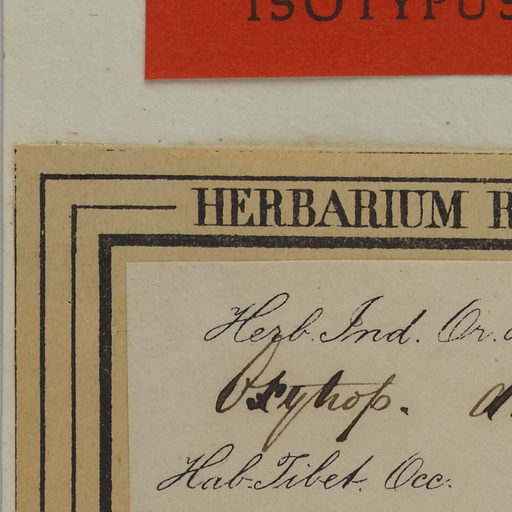 ISOTYPUS
HERBARIUM R
Herb. Ind. Or.
Oxytrop.
Hab. Tibet. Occ.